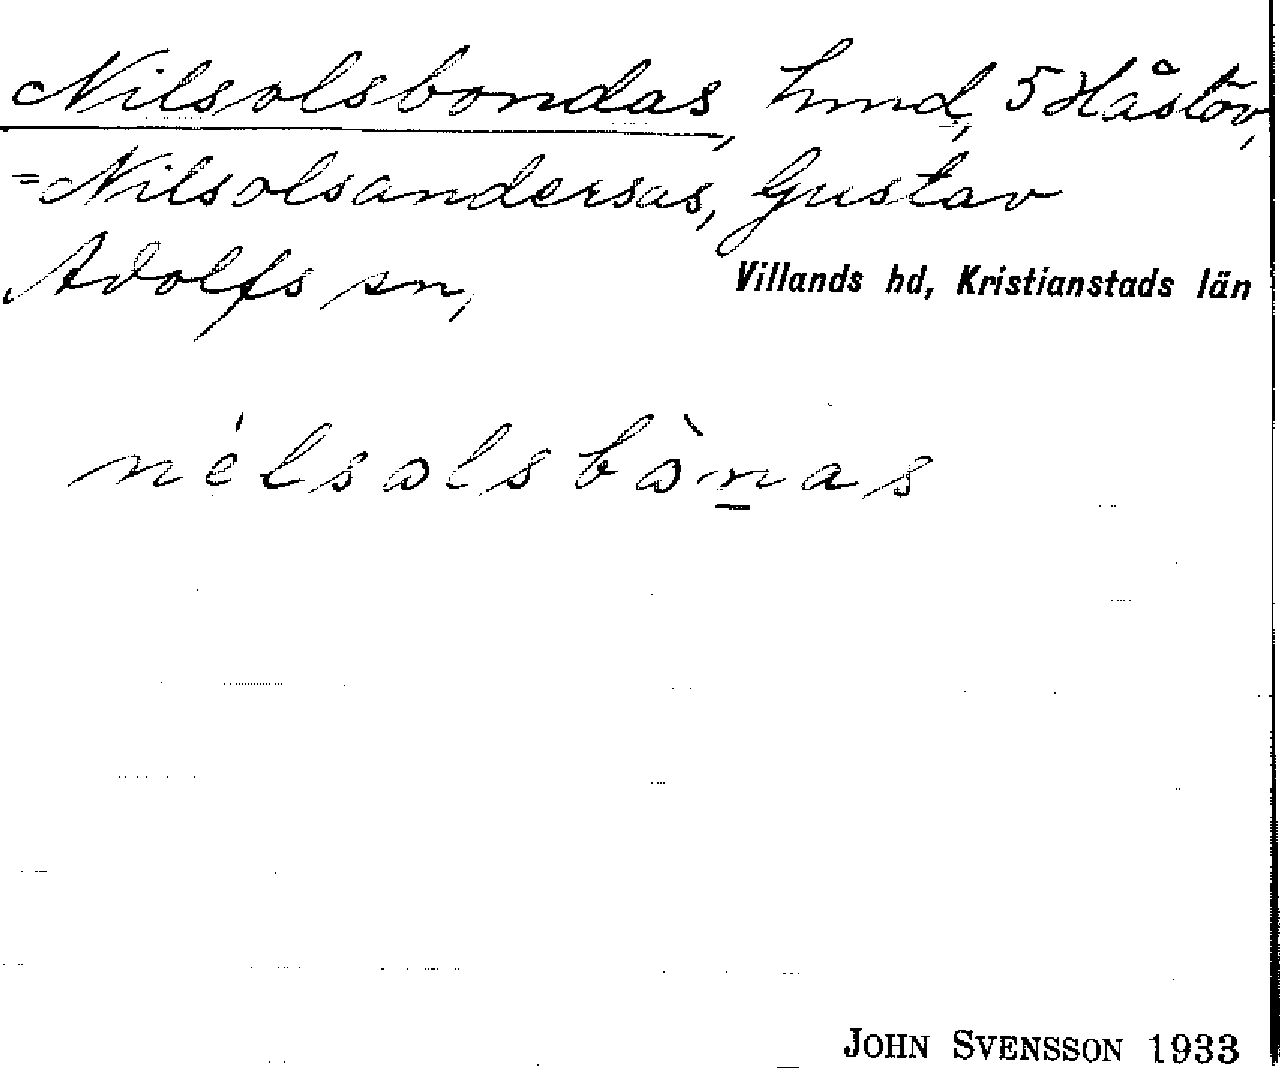 Nilsolsbondas, hmd, 5 Håstöv,
=Nilsolsandersas, Gustav
Adolfs sn,
Villands hd, Kristianstads län
nélsolsbònas
JOHN SVENSSON 1933